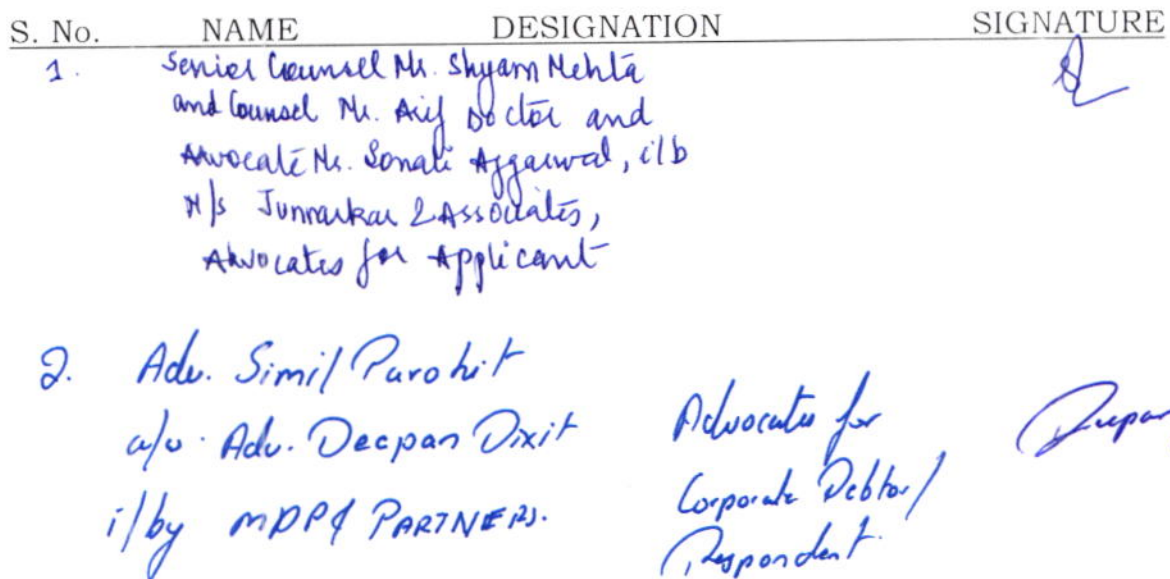 S. No. NAME DESIGNATION SIGNATURE
1. Senior Counsel Mr. Shyam Mehta
and Counsel Mr. Arif Doctor and
Advocate Ms. Sonali Aggarwal, i/b
M/s Junnarkar & Associates,
Advocates for Applicant
2. Adv. Simil Purohit
a/w. Adv. Deepan Dixit Advocates for Deepan
i/by MDP & PARTNERS. Corporate Debtor/
Respondent.